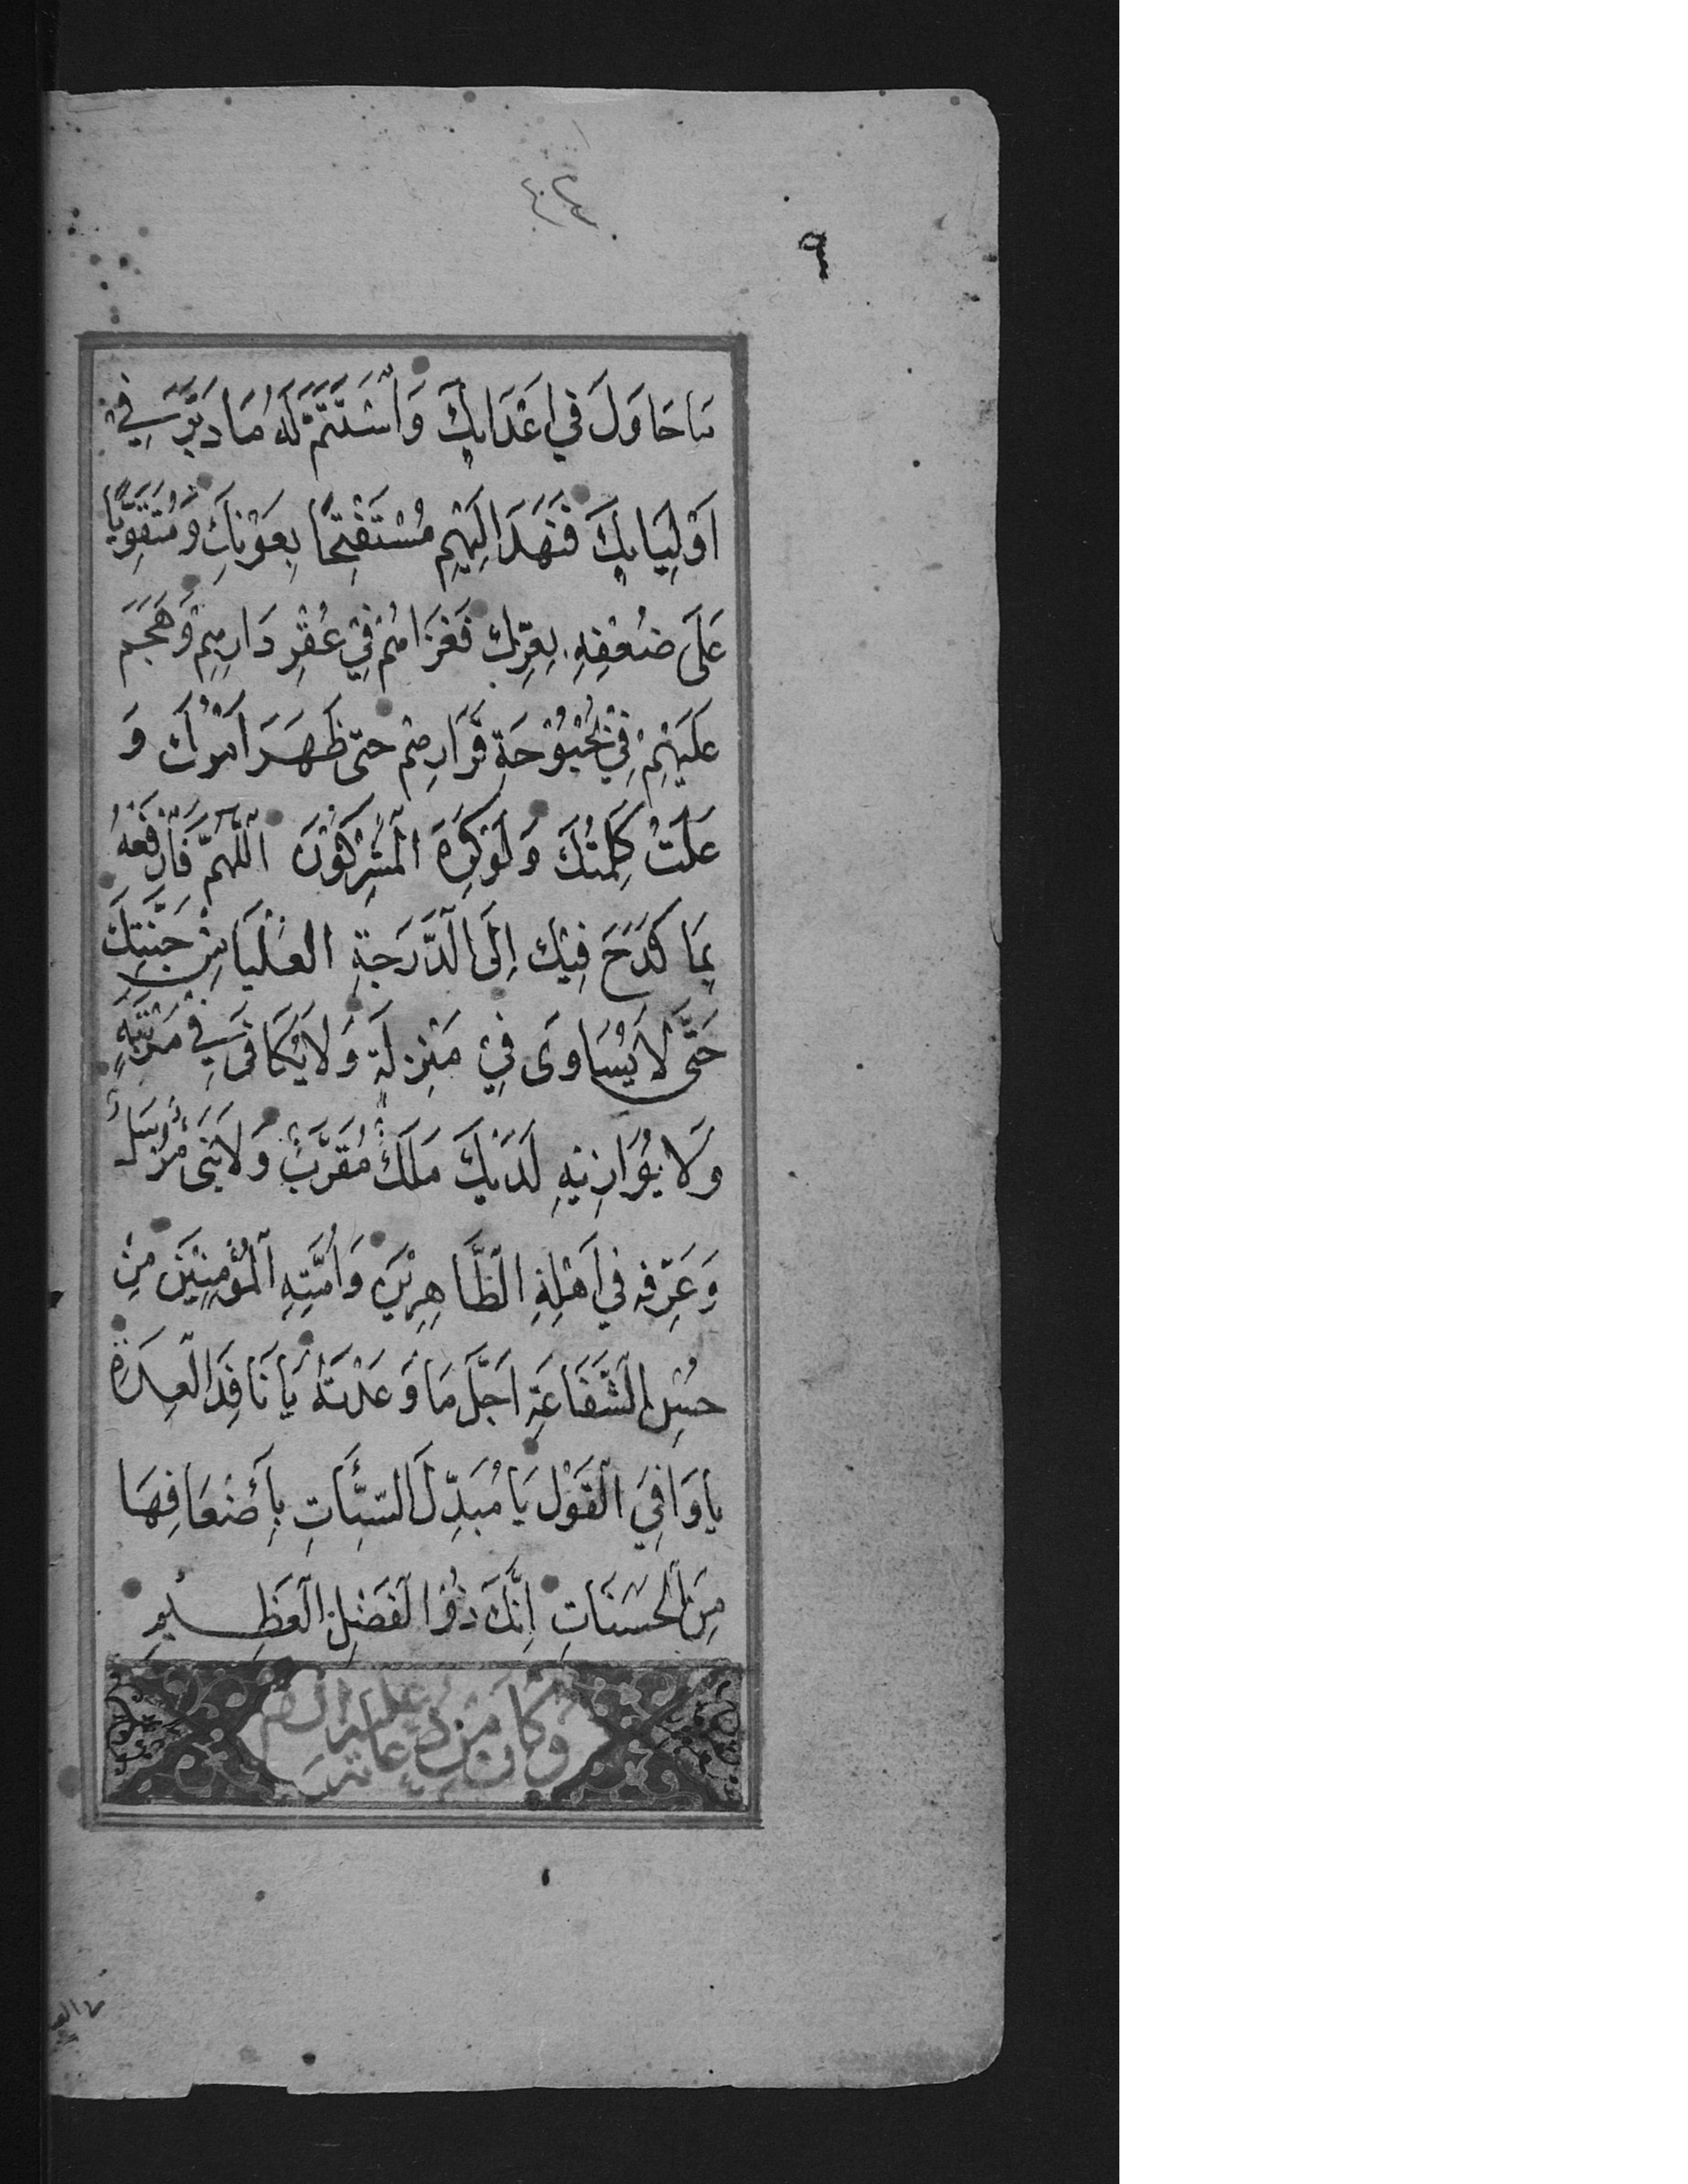 ٤٠٢
٩
مَا حَاوَلَ فِي اَعْدَايِكَ وَاسْتَتَمَّ لَهُ مَا دَبَّرَ فِي
اَوْلِيَايِكَ فَنَهَدَ اِلَيْهِمْ مُسْتَفْتِحًا بِعَوْنِكَ وَمُتَقَوِّيًا
عَلَى ضَعْفِهِ بِعِزِّكَ فَغَزَاهُمْ فِي عُقْرِ دَارِهِمْ وَهَجَمَ
عَلَيْهِمْ فِي بُحْبُوْحَةِ قَرَارِهِمْ حَتّى ظَهَرَ اَمْرُكَ وَ
عَلَتْ كَلِمَتُكَ وَلَوْ كَرِهَ الْمُشْرِكُوْنَ اَللّهُمَّ فَارْفَعْهُ
بِمَا كَدَحَ فِيْكَ اِلَى الدَّرَجَةِ الْعُلْيَا مِنْ جَنَّتِكَ
حَتَّى لَا يُسَاوَى فِيْ مَنْزِلَةٍ وَلَا يُكَافَى فِي مَرْتَبَةٍ
وَلَا يُوَازِنَهُ لَدَيْكَ مَلَكٌ مُقَرَّبٌ وَلَا نَبِيٌّ مُرْسَلٌ
وَعَرِّفْهُ فِي اَهْلِهِ الطَّاهِرِيْنَ وَاُمَّتِهِ الْمُؤْمِنِيْنَ مِنْ
حُسْنِ الشَّفَاعَةِ اَجَلَّ مَا وَعَدْتَهُ يَا نَافِذَ الْعِدَةِ
يَا وَافِيَ الْقَوْلِ يَا مُبَدِّلَ السَّيِّئَاتِ بِأَضْعَافِهَا
مِنَ الْحَسَنَاتِ اِنَّكَ ذُو الْفَضْلِ الْعَظِيْمِ
وَكَانَ مِنْ دُعَائِهِ عَلَيْهِ السَّلَام